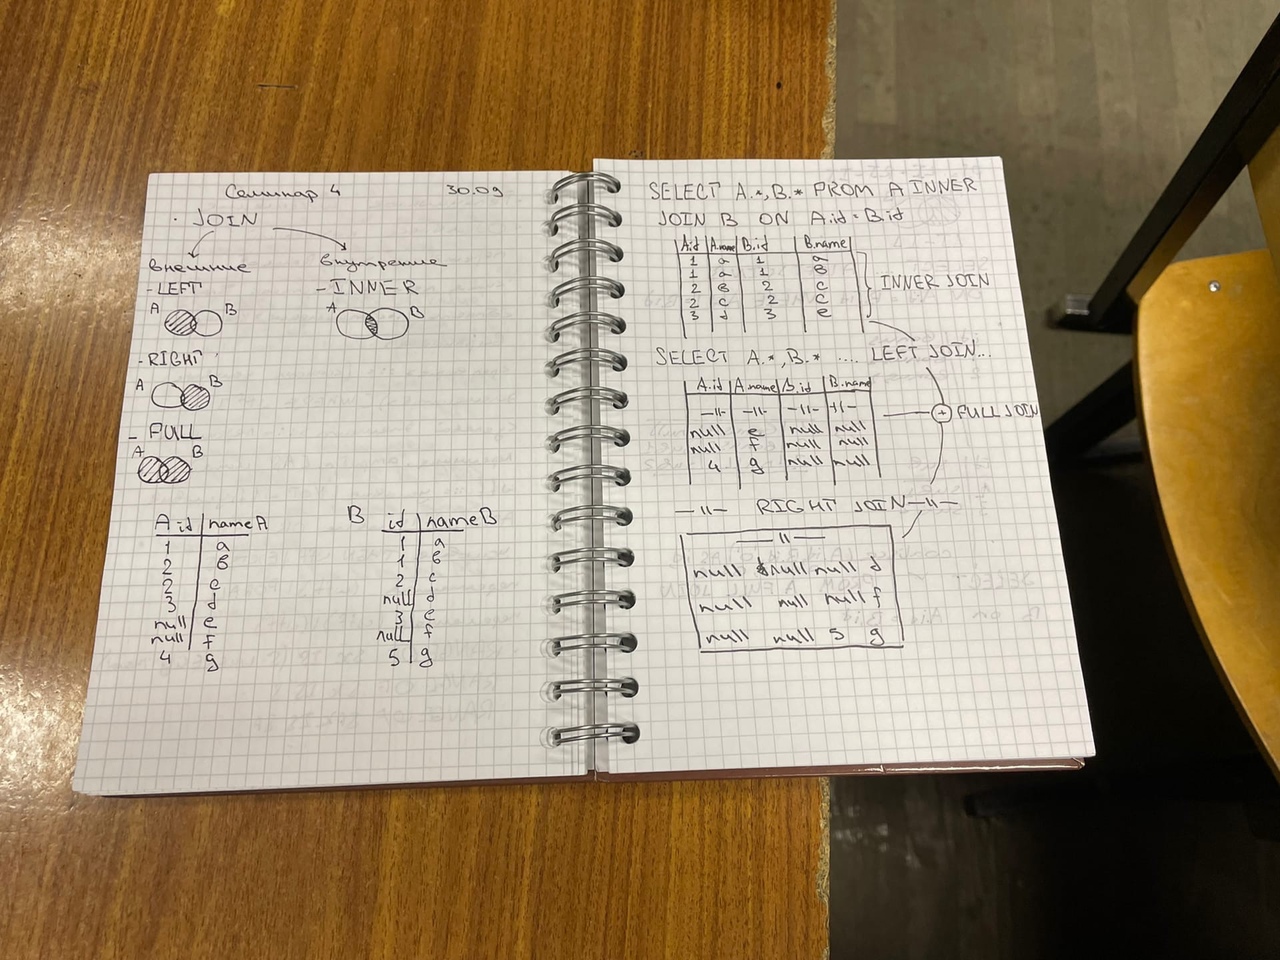 Семинар 4 30.09
· JOIN
внешние внутренние
- LEFT - INNER
A B A B
- RIGHT
A B
- FULL
A B
A id name A
1 a
2 в
2 c
3 d
null e
null f
4 g
B id name B
1 a
1 в
2 c
null d
3 e
null f
5 g
SELECT A.*, B.* FROM A INNER
JOIN B ON A.id = B.id
A.id A.name B.id B.name
1 a 1 a
1 a 1 в
2 в 2 c
2 c 2 c
3 d 3 e
INNER JOIN
SELECT A.*, B.* .... LEFT JOIN...
A.id A.name B.id B.name
-||- -||- -||- -||-
null e null null
null f null null
4 g null null
+ FULL JOIN
-||- RIGHT JOIN -||-
-||-
null null null d
null null null f
null null 5 g